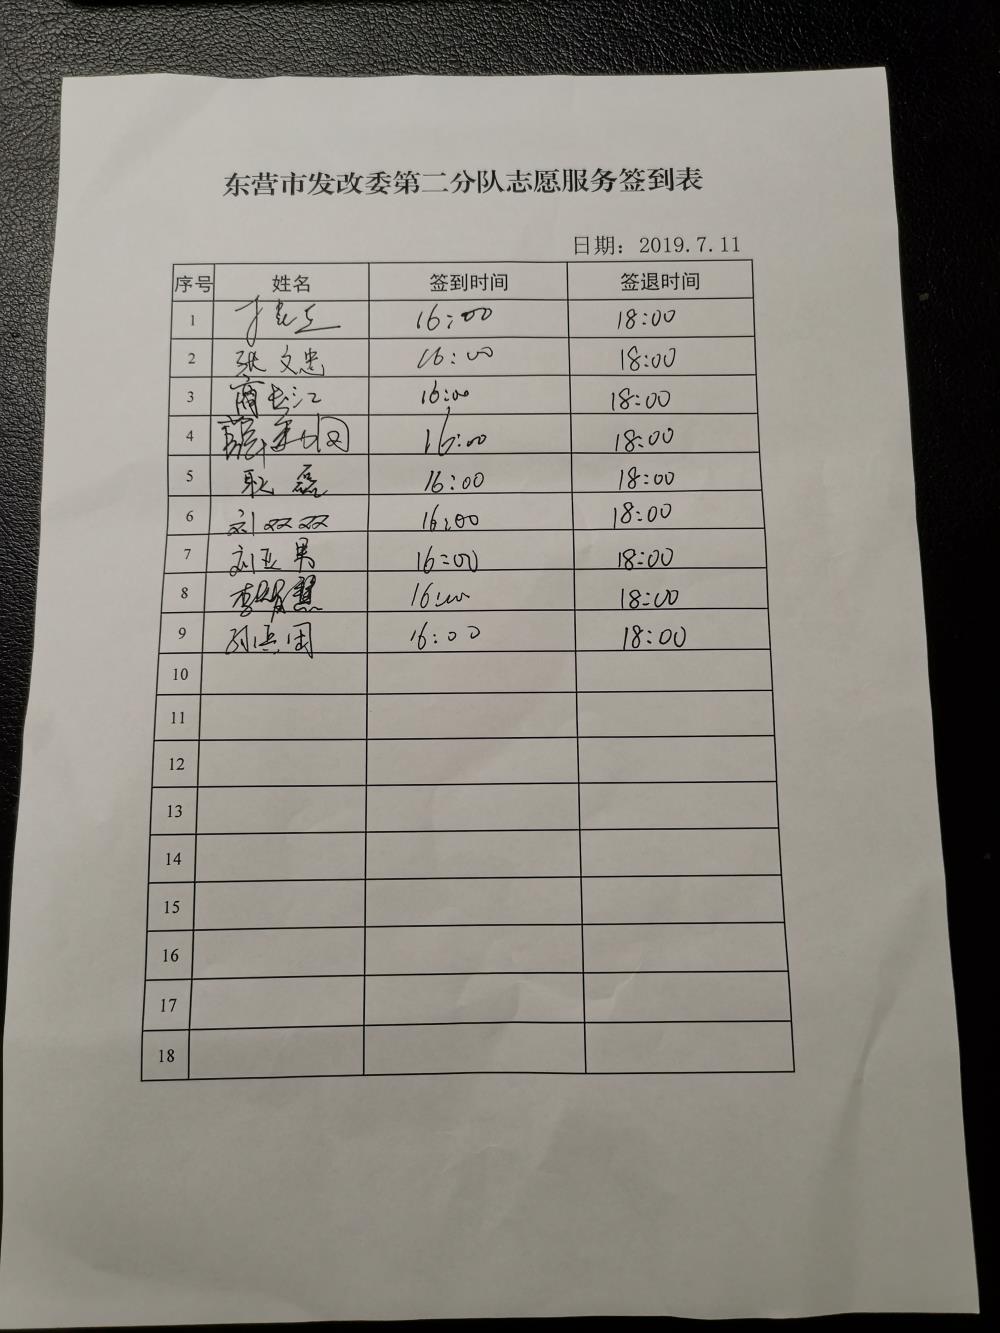 东营市发改委第二分队志愿服务签到表
日期：2019.7.11
序号 姓名 签到时间 签退时间
1 16:00 18:00
2 张文忠 16:00 18:00
3 商长江 16:00 18:00
4 16:00 18:00
5 耿磊 16:00 18:00
6 刘双双 16:00 18:00
7 刘亚男 16:00 18:00
8 李 慧 16:00 18:00
9 孙 国 16:00 18:00
10
11
12
13
14
15
16
17
18